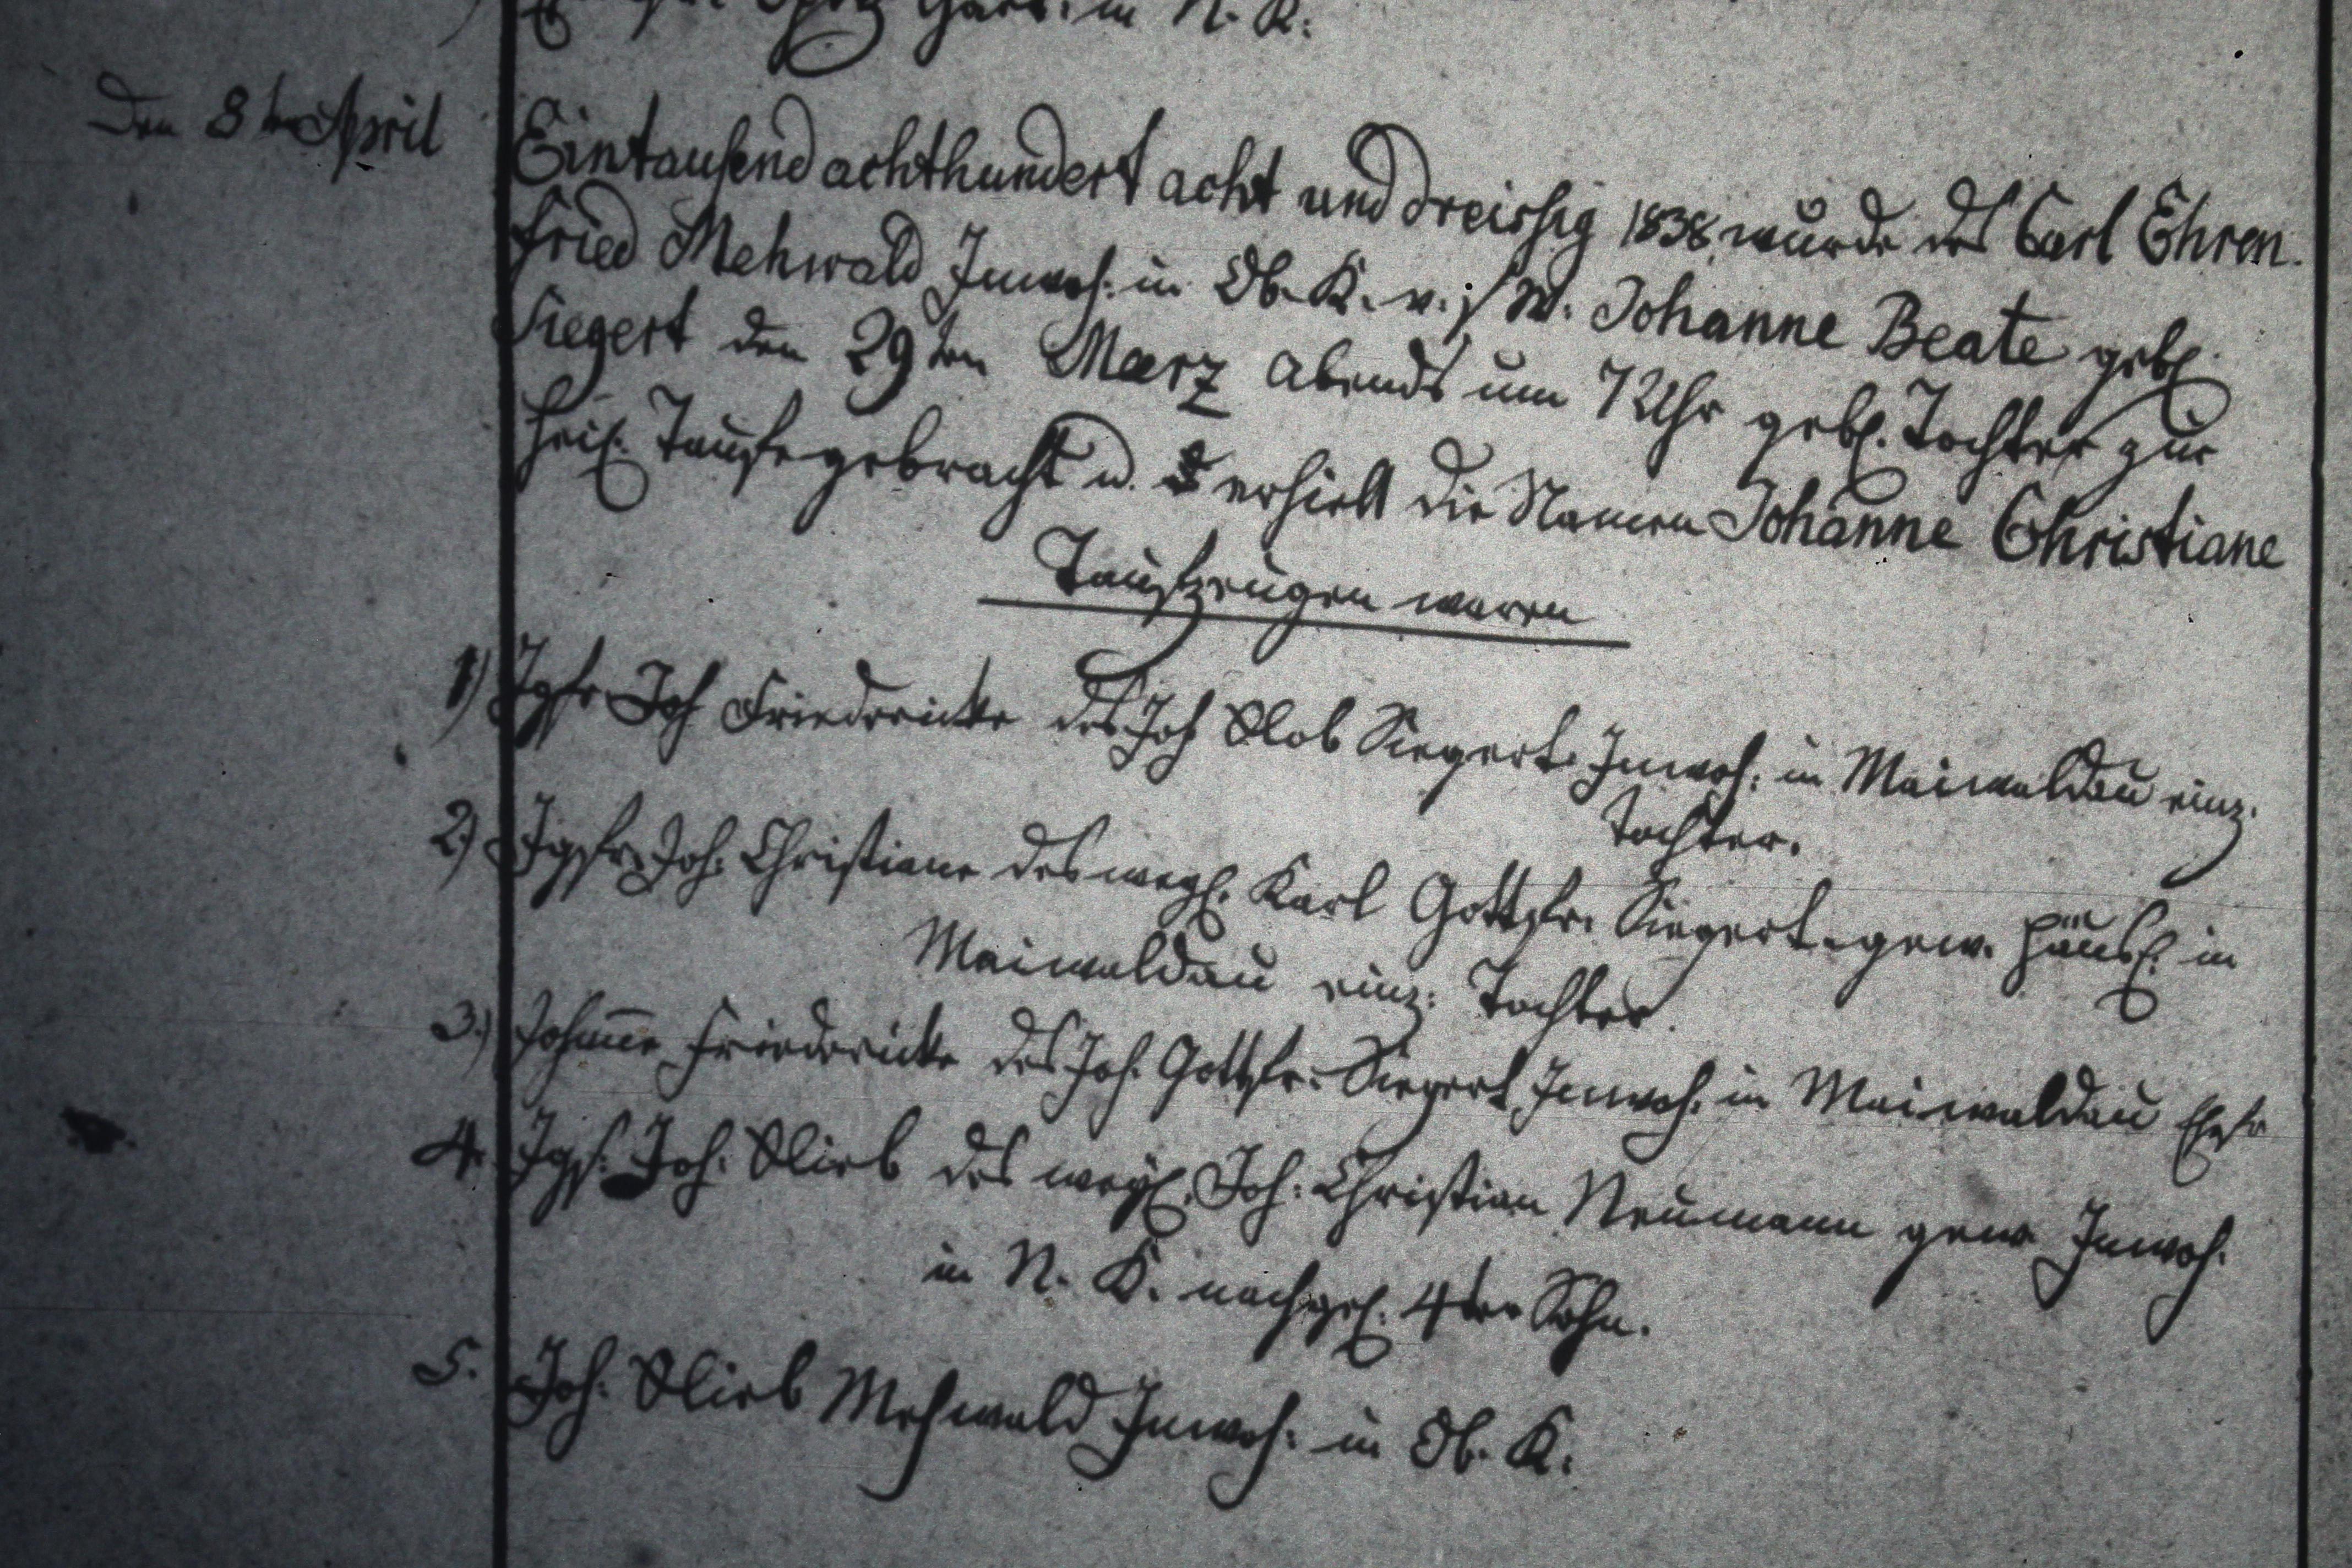 Gärt. in N. K.
Den 8ten April
Eintausend achthundert acht und dreissig 1838 wurde des Carl Ehren-
fried Mehwald Inwoh: in Ob. K. v. s/ W. Johanne Beate gebl.
Siegert den 29ten Maerz abends um 7 Uhr gebl. Tochter zur
heil. Taufe gebracht u. erhielt die Namen Johanne Christiane
Taufzeugen waren
1) Jgfr Joh Friedericke des Joh Glob Siegert Inwoh: in Maiwaldau einz.
Tochter.
2) Jgfr. Joh. Christiane des weyl. Karl Gottfr. Siegert gew. Häusl. in
Maiwaldau einz: Tochter.
3.) Johanne Friedericke des Joh. Gottfr. Siegert Inwoh. in Maiwaldau Ehfr
4. Jgs. Joh. Glieb des weyl. Joh: Christian Neumann gew Inwoh.
in N. K. nachgel. 4ter Sohn.
5. Joh. Glieb Mehwald Inwoh: in Ob. K.